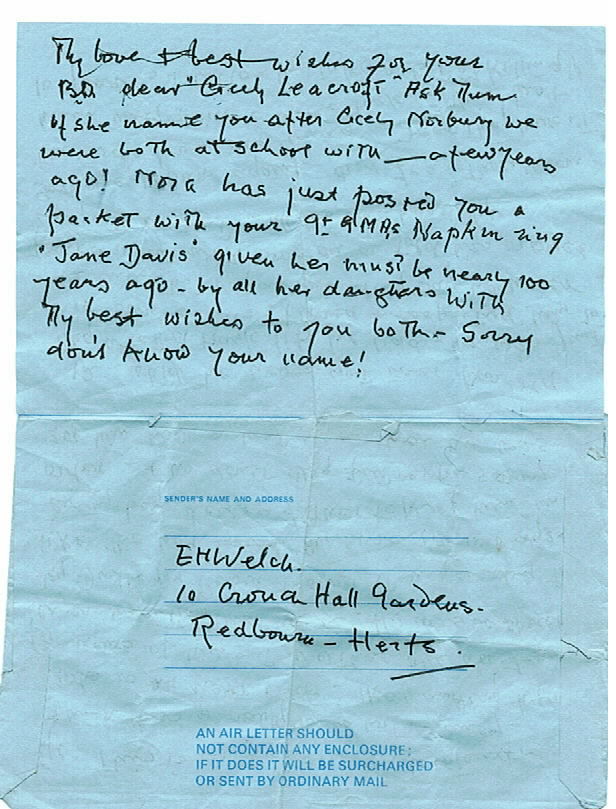 My love & best wishes for your
BD dear "Cicely Leacroft" Ask Mum
if she named you after Cicely Norbury we
were both at school with — a few years
ago! Nora has just posted you a
packet with your gt GMAs Napkin ring
"Jane Davis" given her must be nearly 100
years ago - by all her daughters With
My best wishes to you both - Sorry
don't know your name!
SENDER'S NAME AND ADDRESS
EHWelch.
10 Crouch Hall Gardens.
Redbourn - Herts.
AN AIR LETTER SHOULD
NOT CONTAIN ANY ENCLOSURE;
IF IT DOES IT WILL BE SURCHARGED
OR SENT BY ORDINARY MAIL